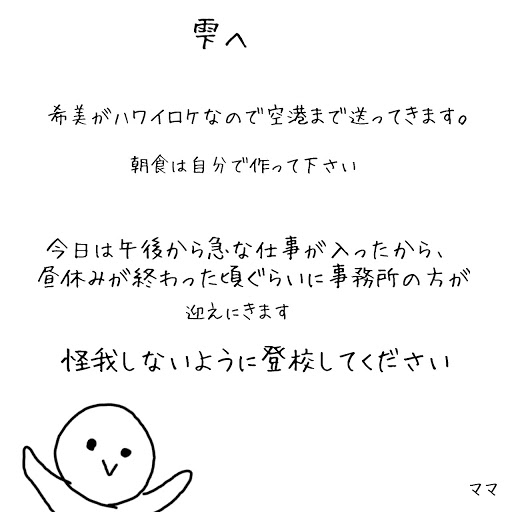 雫へ
希美がハワイロケなので空港まで送ってきます。
朝食は自分で作って下さい
今日は午後から急な仕事が入ったから、
昼休みが終わった頃ぐらいに事務所の方が
迎えにきます
怪我しないように登校してください
ママ